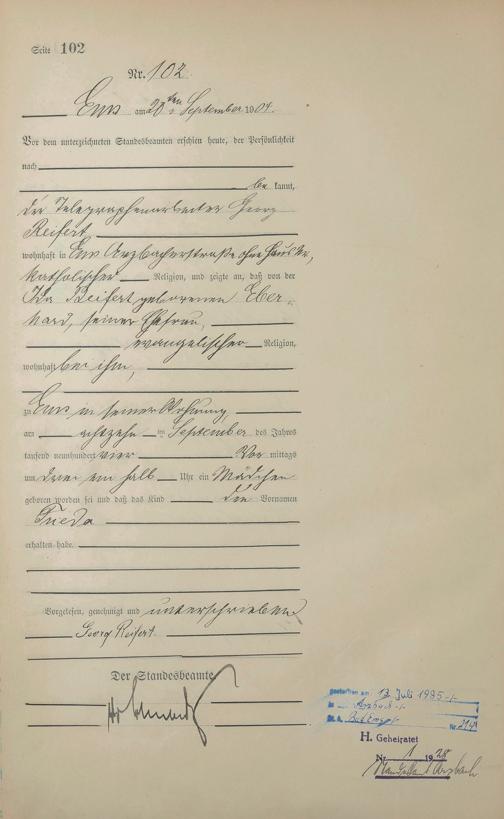 Seite 102
Nr. 102
Ems am 20ten September 1904.
Vor dem unterzeichneten Standesbeamten erschien heute, der Persönlichkeit
nach
be kannt,
der Telegraphenarbeiter Georg
Reifert
wohnhaft in Ems Arzbacherstraße ohne Haus Nr,
katholischer Religion, und zeigte an, daß von der
Ida Reifert geborenen Eber-
hard, seiner Ehefrau,
evangelischer Religion,
wohnhaft bei ihm,
zu Ems in seiner Wohnung,
am achtzehn ten September des Jahres
tausend neunhundert vier Vor mittags
um drei ein halb Uhr ein Mädchen
geboren worden sei und daß das Kind den Vornamen
Frieda
erhalten habe.
Vorgelesen, genehmigt und unterschrieben
Georg Reifert.
Der Standesbeamte.
gestorben am 13. Juli 1985
in Arzbach
St. A. Nr.
H. Geheiratet
Nr. 1 1928
Standesamt Arzbach